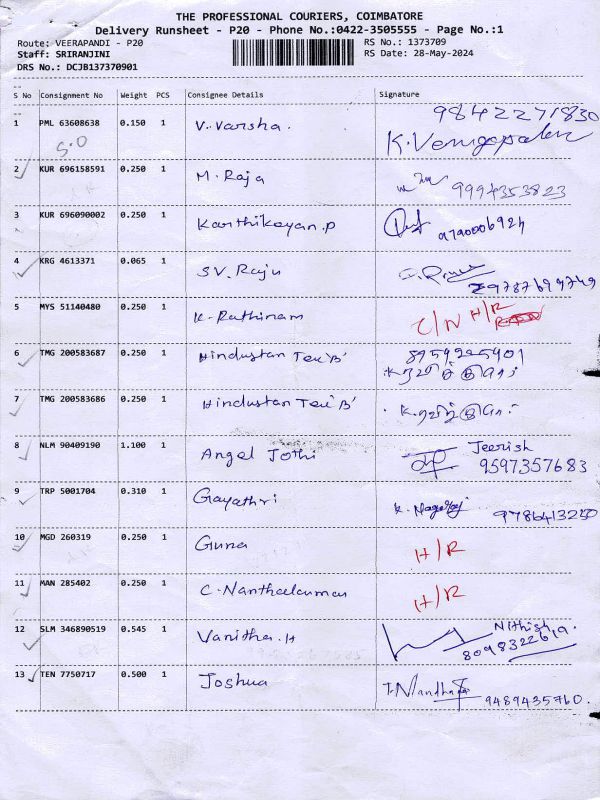 THE PROFESSIONAL COURIERS, COIMBATORE
Delivery Runsheet - P20 - Phone No.:0422-3505555 - Page No.:1
Route: VEERAPANDI - P20 RS No.: 1373709
Staff: SRIRANJINI RS Date: 28-May-2024
DRS No.: DCJB137370901
S No Consignment No Weight PCS Consignee Details Signature
1 PML 63608638 0.150 1 V. Varsha. 9842271830
S.O K. Venugopalan
2 KUR 696158591 0.250 1 M. Raja 9994353823
3 KUR 696090002 0.250 1 Karthikayan.P 9790006924
4 KRG 4613371 0.065 1 SV. Raju 9787699749
5 MYS 51140480 0.250 1 K. Rathinam C/N H/R
6 TMG 200583687 0.250 1 Hindustan Tex 'B' 8959225901
7 TMG 200583686 0.250 1 Hindustan Tex 'B'
8 NLM 90409190 1.100 1 Angel Jothi Jeerish
9597357683
9 TRP 5001704 0.310 1 Gayathri K. Nagaraj 9786413250
10 MGD 260319 0.250 1 Guna H/R
11 MAN 285402 0.250 1 C. Nanthakumar H/R
12 SLM 346890519 0.545 1 Vanitha.H Nithish
8098322619.
13 TEN 7750717 0.500 1 Joshua 9489435760.